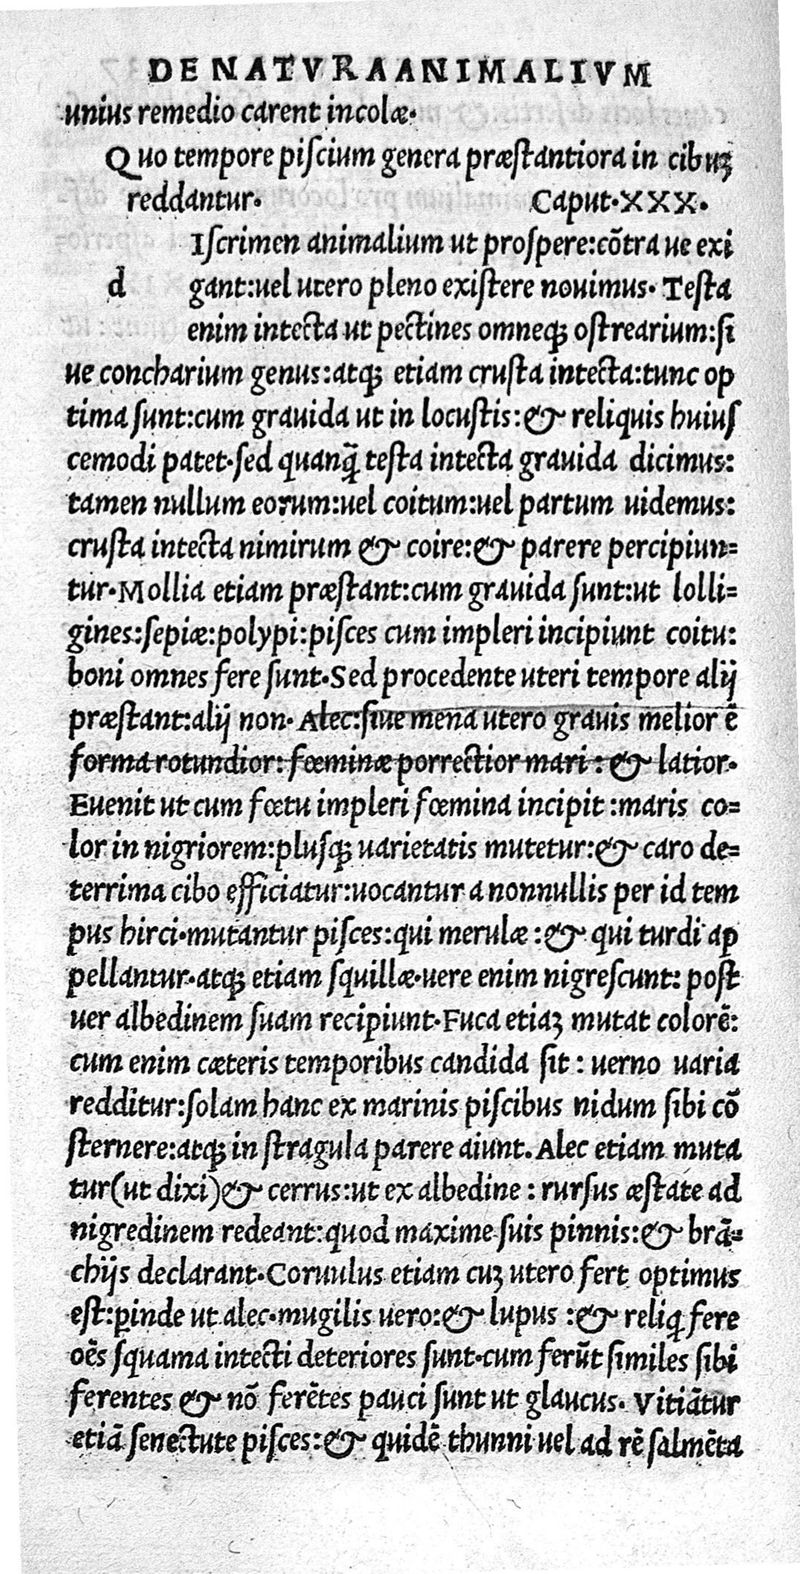 DE NATVRA ANIMALIVM
unius remedio carent incolæ·
Quo tempore piſcium genera præſtantiora in cibuꝫ
reddantur· Caput·XXX·
Iſcrimen animalium ut proſpere:cõtra ue exi
d gant:uel utero pleno exiſtere nouimus· Teſta
enim intecta ut pectines omneqꝫ oſtrearium:ſi
ue concharium genus:atqꝫ etiam cruſta intecta:tunc op
tima ſunt:cum grauida ut in locuſtis:& reliquis huiuſ
cemodi patet·ſed quanq̃ teſta intecta grauida dicimus:
tamen nullum eorum:uel coitum:uel partum uidemus:
cruſta intecta nimirum & coire:& parere percipiun=
tur·Mollia etiam præſtant:cum grauida ſunt:ut lolli=
gines:ſepiæ:polypi:piſces cum impleri incipiunt coitu:
boni omnes fere ſunt·Sed procedente uteri tempore alij
præſtant:alij non· Alec:ſiue mena utero grauis melior ẽ
forma rotundior: fœminæ porrectior mari : & latior·
Euenit ut cum fœtu impleri fœmina incipit :maris co=
lor in nigriorem:pluſqꝫ uarietatis mutetur:& caro de=
terrima cibo efficiatur:uocantur a nonnullis per id tem
pus hirci·mutantur piſces:qui merulæ :& qui turdi ap
pellantur·atqꝫ etiam ſquillæ·uere enim nigreſcunt: poſt
uer albedinem ſuam recipiunt·Fuca etiaꝫ mutat colorẽ:
cum enim cæteris temporibus candida ſit : uerno uaria
redditur:ſolam hanc ex marinis piſcibus nidum ſibi cõ
ſternere:atqꝫ in ſtragula parere aiunt. Alec etiam muta
tur(ut dixi)& cerrus:ut ex albedine : rurſus æſtate ad
nigredinem redeant:quod maxime ſuis pinnis:& brã=
chijs declarant·Coruulus etiam cuꝫ utero fert optimus
eſt:ꝑinde ut alec·mugilis uero:& lupus :& reliq̃ fere
oẽs ſquama intecti deteriores ſunt·cum ferũt ſimiles ſibi
ferentes & nõ ferẽtes pauci ſunt ut glaucus· Vitiãtur
etiã ſenectute piſces:& quidẽ thunni uel ad rẽ ſalmẽta